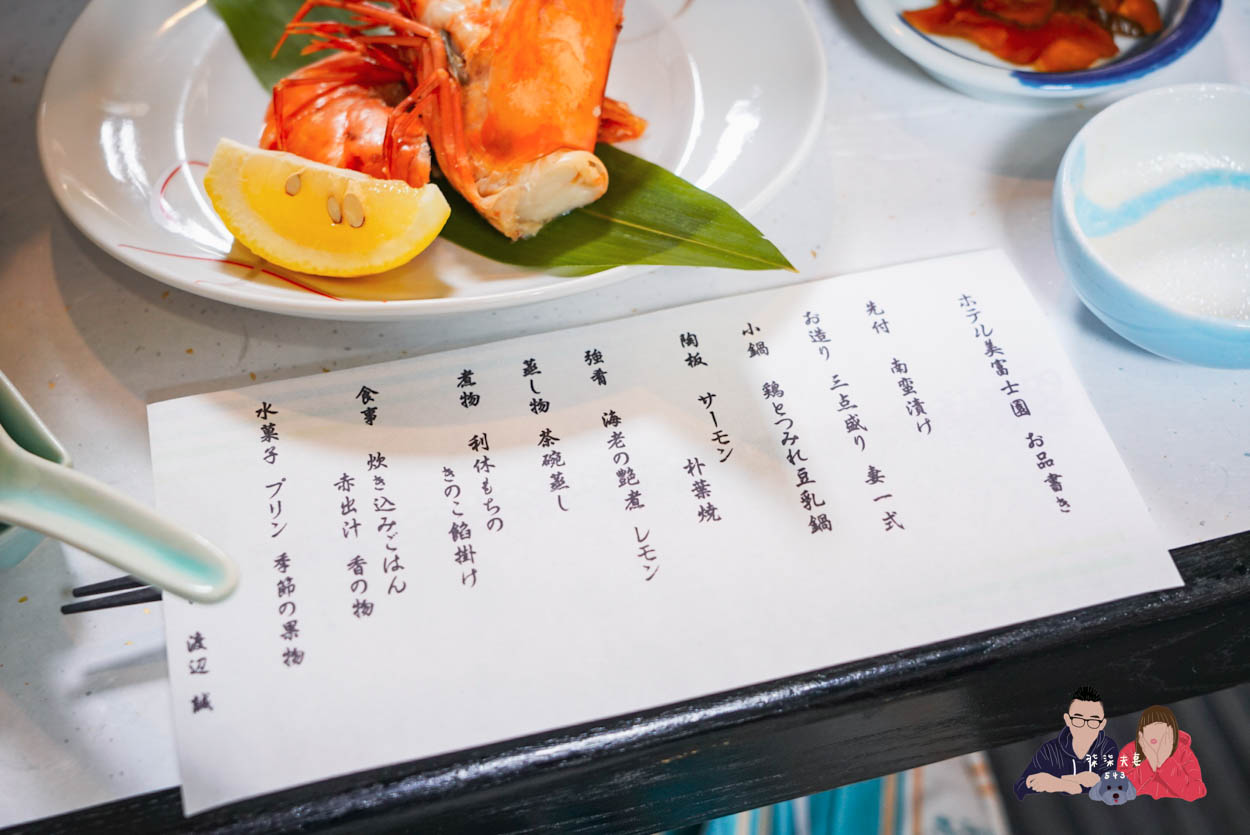 ホテル美富士園 お品書き
先付 南蛮漬け
お造り 三点盛り 妻一式
小鍋 鶏とつみれ豆乳鍋
陶板 サーモン 朴葉焼
強肴 海老の艶煮 レモン
蒸し物 茶碗蒸し
煮物 利休もちの
きのこ餡掛け
食事 炊き込みごはん
赤出汁 香の物
水菓子 プリン 季節の果物
渡辺 誠
柒柒夫妻
543